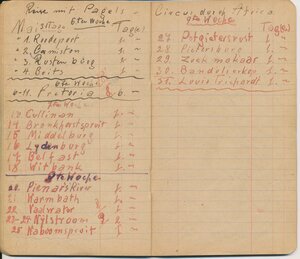 Reise mit Pagels.
6te Woche
Mai Tage Tage
1. Rudeport 1. –
2. Gamiston 1. –
3. Rustenburg 1. –
4. Brits 1. –
7te Woche
6-11. Pretoria 6 –
8te Woche
13 Cullinan 1. –
14 Bronkhorstspruit 1. –
15 Middelburg 1. –
16 Lydenburg 1. –
17 Belfast 1. –
18 Witbank 1. –
9te Woche
20. Pienarsrivir 1. –
21 Warmbath 1. –
22 Vaalwater 1. –
23-24 Nÿlstroom 2 –
25 Naboomspruit 1. –
Circus durch Africa
9te Woche
Tage
27. Potgietersrust 1. –
28 Pietersburg 1. –
29. Zoekmakaar 1. –
30. Bandelierkop 1. –
31. Louis Trichardt 1. –